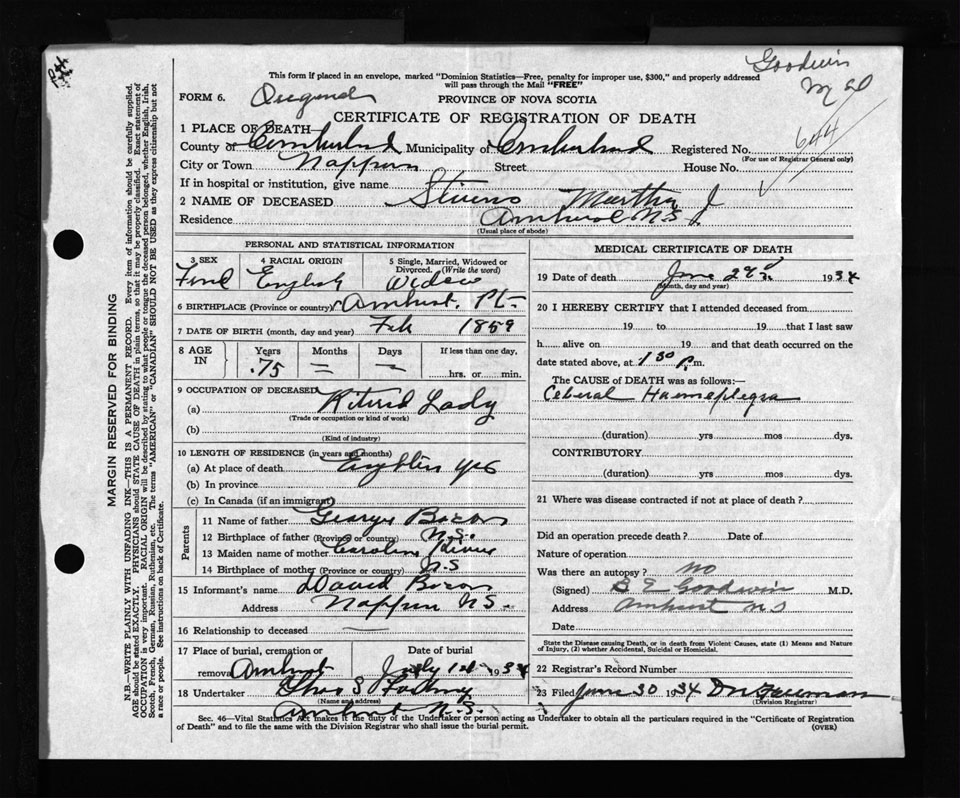 Goodwin
M D
This form if placed in an envelope, marked "Dominion Statistics—Free, penalty for improper use, $300," and properly addressed
will pass through the Mail "FREE"
FORM 6.
PROVINCE OF NOVA SCOTIA
CERTIFICATE OF REGISTRATION OF DEATH
644
1 PLACE OF DEATH
County of Cumberland Municipality of Cumberland Registered No.
(For use of Registrar General only)
City or Town Nappan Street House No.
If in hospital or institution, give name
2 NAME OF DECEASED Stivens Martha J
Residence Amherst N.S.
(Usual place of abode)
PERSONAL AND STATISTICAL INFORMATION
3 SEX 4 RACIAL ORIGIN 5 Single, Married, Widowed or Divorced. (Write the word)
English Widow
6 BIRTHPLACE (Province or country) Amherst. Pt.
7 DATE OF BIRTH (month, day and year) Feb 1859
8 AGE IN Years Months Days If less than one day.
75 — —
hrs. or min.
9 OCCUPATION OF DECEASED
(a) Retired Lady
(Trade or occupation or kind of work)
(b)
(Kind of industry)
10 LENGTH OF RESIDENCE (in years and months)
(a) At place of death yrs
(b) In province
(c) In Canada (if an immigrant)
Parents
11 Name of father George
12 Birthplace of father (Province or country) N.S.
13 Maiden name of mother
14 Birthplace of mother (Province or country) N.S
15 Informant's name David
Address Nappan N.S.
16 Relationship to deceased —
17 Place of burial, cremation or removal Date of burial
Amherst July 1st 1934
18 Undertaker
(Name and address)
Amherst N.S.
MEDICAL CERTIFICATE OF DEATH
19 Date of death June 29 1934
(Month, day and year)
20 I HEREBY CERTIFY that I attended deceased from
19 to 19 that I last saw
h alive on 19 and that death occurred on the
date stated above, at 1 30 P.m.
The CAUSE of DEATH was as follows:—
(duration) yrs mos dys.
CONTRIBUTORY
(duration) yrs mos dys.
21 Where was disease contracted if not at place of death?
Did an operation precede death? Date of
Nature of operation
Was there an autopsy? no
(Signed) B E Goodwin M.D.
Address Amherst N S
Date
State the Disease causing Death, or in death from Violent Causes, state (1) Means and Nature
of Injury, (2) whether Accidental, Suicidal or Homicidal.
22 Registrar's Record Number
23 Filed June 30 1934
(Division Registrar)
Sec. 46—Vital Statistics Act makes it the duty of the Undertaker or person acting as Undertaker to obtain all the particulars required in the "Certificate of Registration
of Death" and to file the same with the Division Registrar who shall issue the burial permit.
(OVER)
MARGIN RESERVED FOR BINDING
N.B.—WRITE PLAINLY WITH UNFADING INK—THIS IS A PERMANENT RECORD. Every item of information should be carefully supplied.
AGE should be stated EXACTLY. PHYSICIANS should STATE CAUSE OF DEATH in plain terms, so that it may be properly classified. Exact statement of
OCCUPATION is very important. RACIAL ORIGIN will be described by stating to what people or tongue the deceased person belonged, whether English, Irish,
Scotch, French, German, Russian, Ruthenian, etc. The terms "AMERICAN" or "CANADIAN" SHOULD NOT BE USED as they express citizenship but not
a race or people. See instructions on back of Certificate.